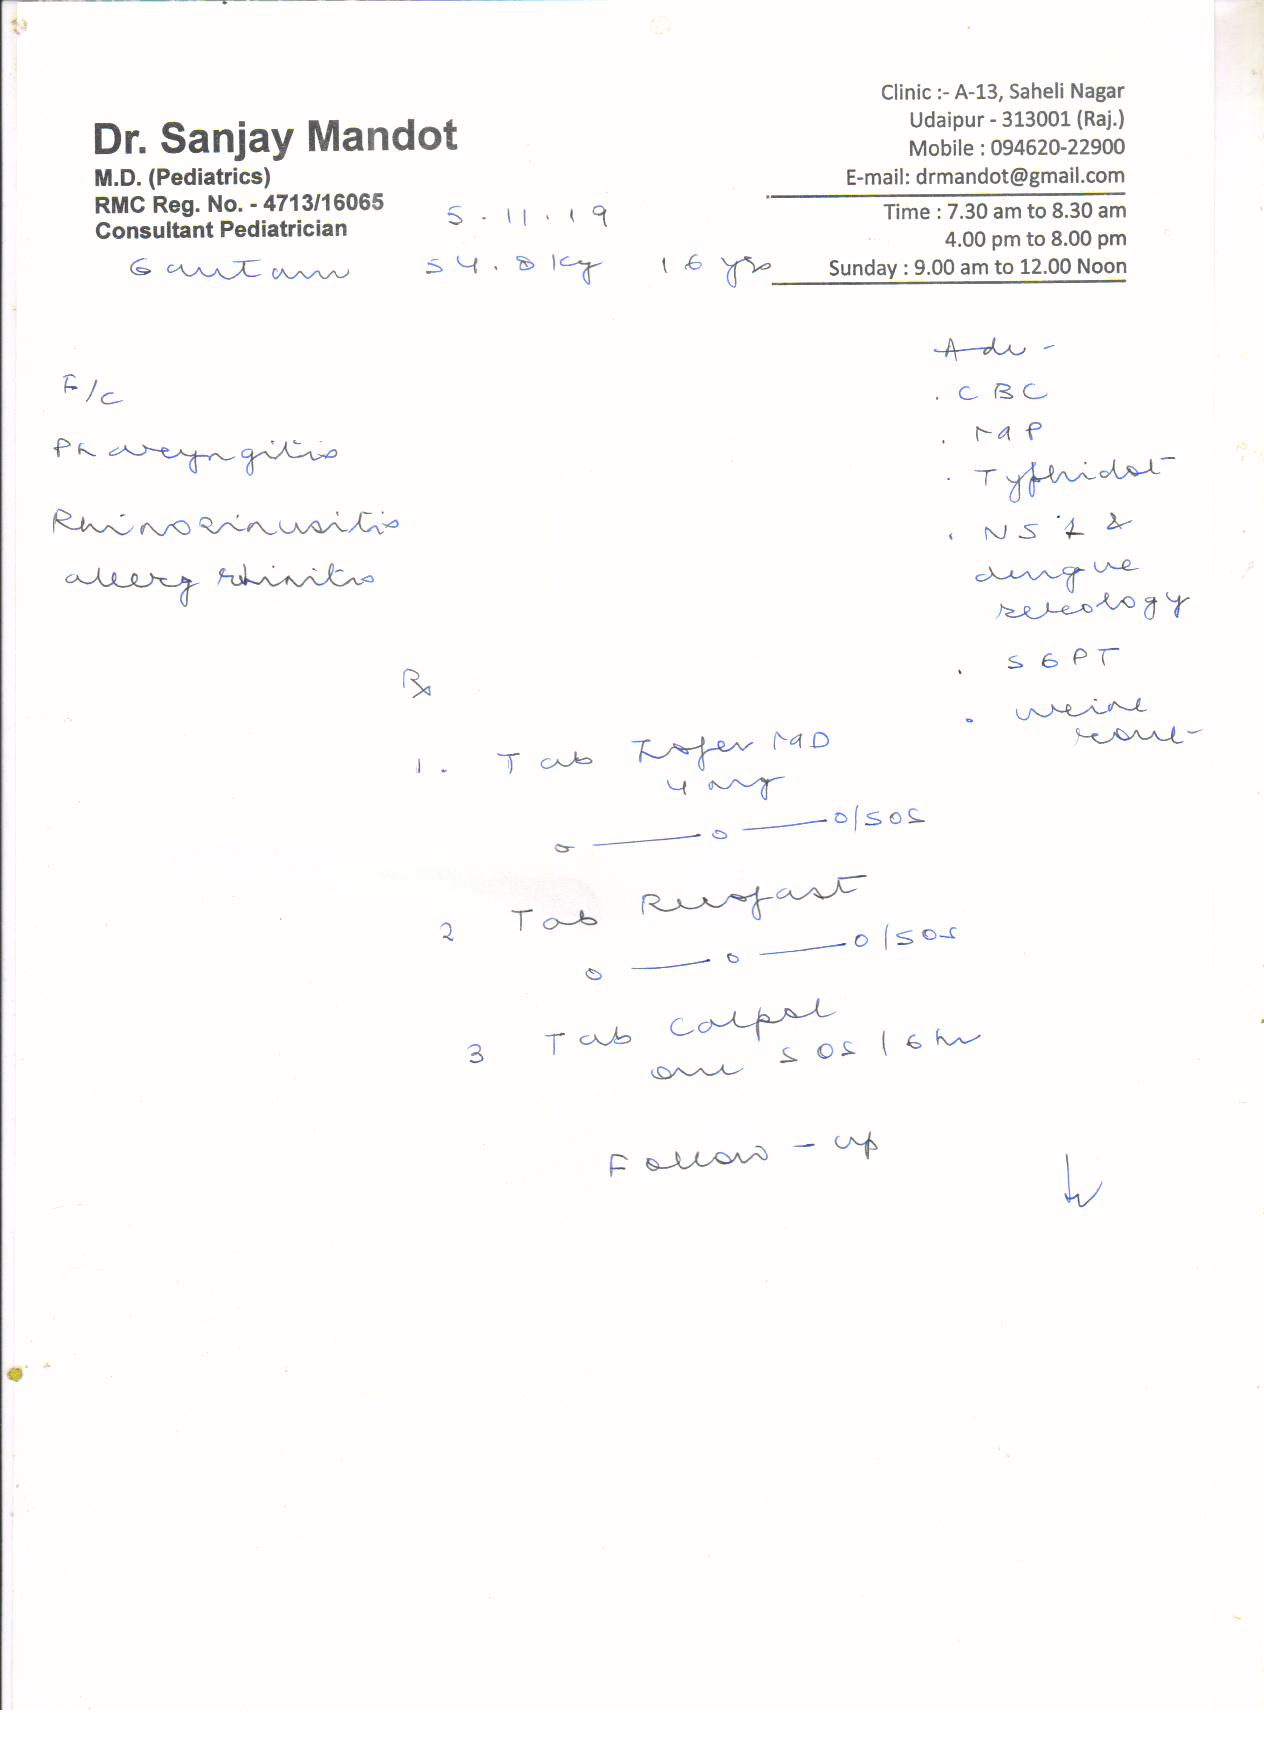 Dr. Sanjay Mandot
M.D. (Pediatrics)
RMC Reg. No. - 4713/16065
Consultant Pediatrician
Clinic :- A-13, Saheli Nagar
Udaipur - 313001 (Raj.)
Mobile : 094620-22900
E-mail: drmandot@gmail.com
Time : 7.30 am to 8.30 am
4.00 pm to 8.00 pm
Sunday : 9.00 am to 12.00 Noon
5.11.19
Gautam 54.8 kg 16 yrs
F/C
Pharyngitis
Rhinosinusitis
allerg rhinitis
Adv -
. CBC
. MP
. Typhidot
. NS 1 &
dengue
serology
. SGPT
. urine
rout-
Rx
1. Tab MD
4 mg
0 — 0 — 0/SOS
2 Tab
0 — 0 — 0/SOS
3 Tab Calpol
one SOS / 6 hr
Follow - up